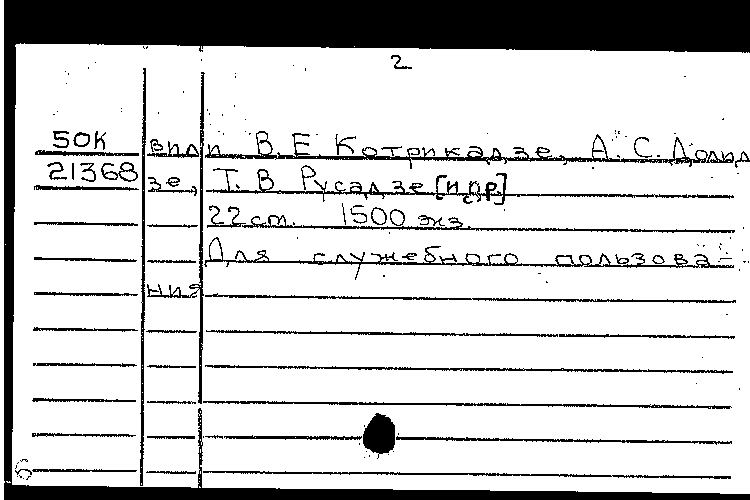 2
50К вили В. Е Котрикадзе, А. С. Долид
21368 зе, Т. В Русадзе [и др.]
22 ст. 1500 экз.
Для служебного пользова-
ния
6